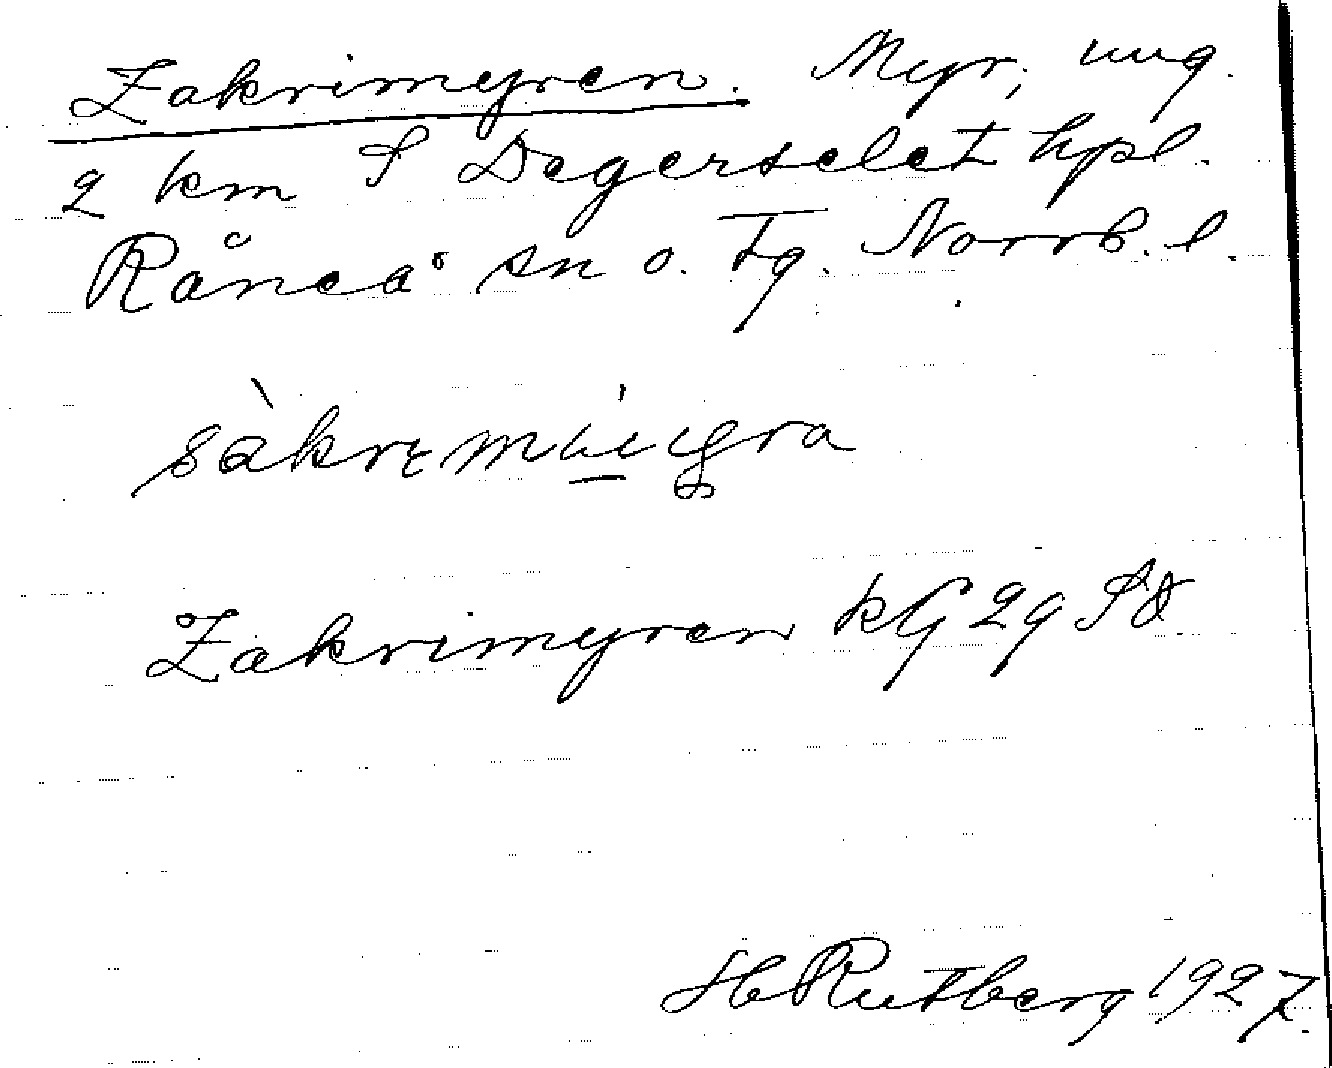 Zakrimyren. Myr, ung.
2 km S Degerselet hpl.
Råneå sn o. tg. Norrb. l.
Zakrimyren kG 29 SO
H Rutberg 1927.